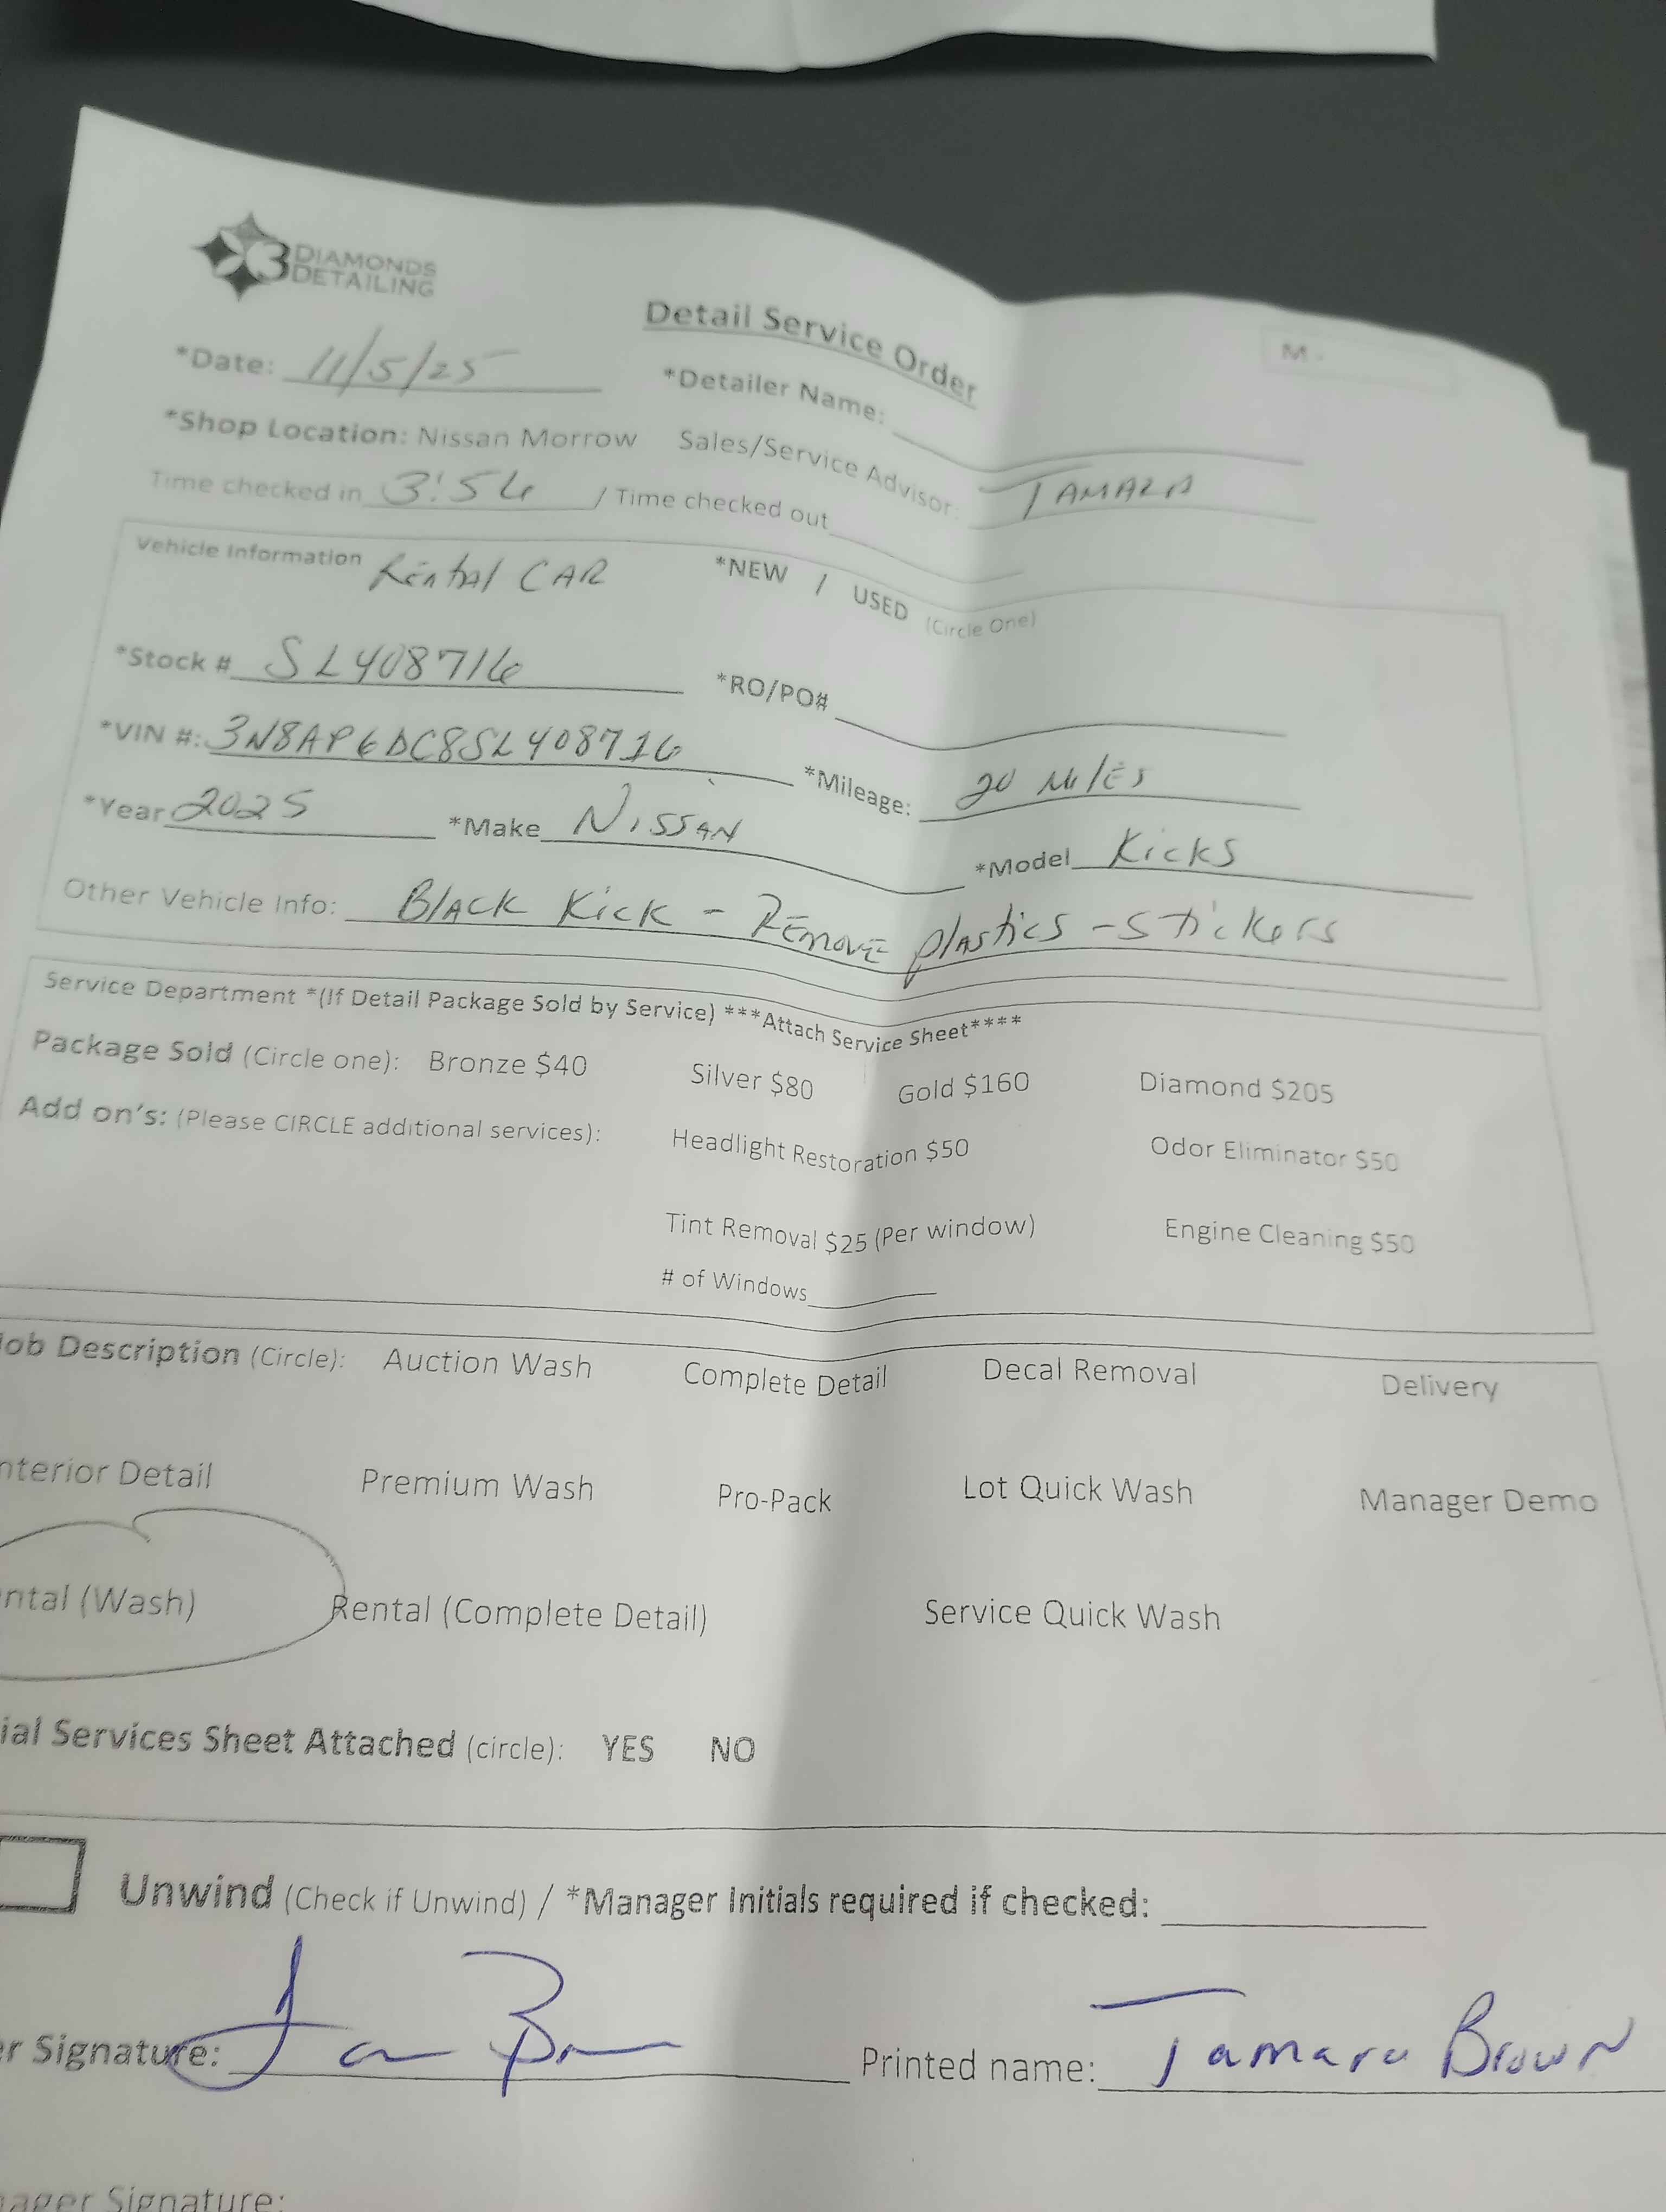 3 DIAMONDS
DETAILING
Detail Service Order
M -
*Date: 11/5/25 *Detailer Name:
*Shop Location: Nissan Morrow Sales/Service Advisor: TAMARA
Time checked in 3:56 / Time checked out
Vehicle Information Rental CAR *NEW / USED (Circle One)
*Stock # SL408716 *RO/PO#
*VIN #: 3N8AP6DC8SL408716 *Mileage: 20 Miles
*Year 2025 *Make Nissan *Model Kicks
Other Vehicle Info: Black Kick - Remove plastics - stickers
Service Department *(If Detail Package Sold by Service) ***Attach Service Sheet****
Package Sold (Circle one): Bronze $40 Silver $80 Gold $160 Diamond $205
Add on's: (Please CIRCLE additional services): Headlight Restoration $50 Odor Eliminator $50
Tint Removal $25 (Per window) Engine Cleaning $50
# of Windows
ob Description (Circle): Auction Wash Complete Detail Decal Removal Delivery
nterior Detail Premium Wash Pro-Pack Lot Quick Wash Manager Demo
ntal (Wash) Rental (Complete Detail) Service Quick Wash
ial Services Sheet Attached (circle): YES NO
Unwind (Check if Unwind) / *Manager Initials required if checked:
er Signature: Printed name: Tamara Brown
ager Signature: